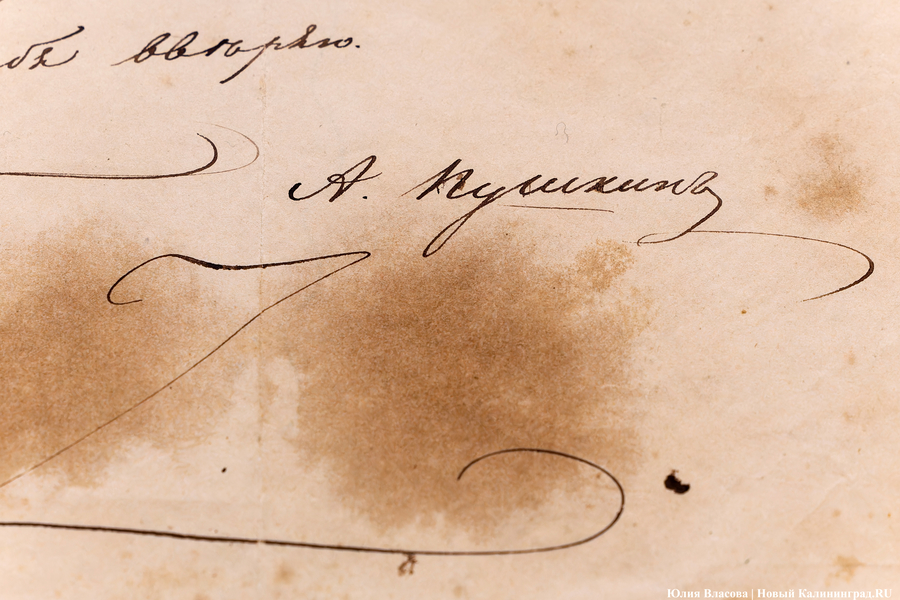 бѣ ввѣряю.
А. Пушкинъ
Юлия Власова | Новый Калининград.RU